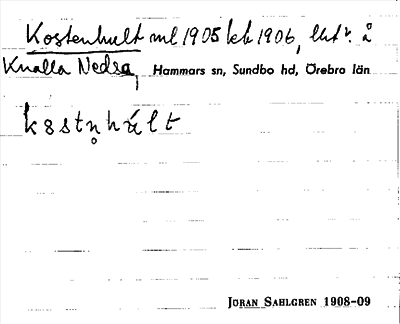 Kostenhult ml 1905 kk 1906, lht. å
Knalla Nedra, Hammars sn, Sundbo hd, Örebro län
JÖRAN SAHLGREN 1908-09